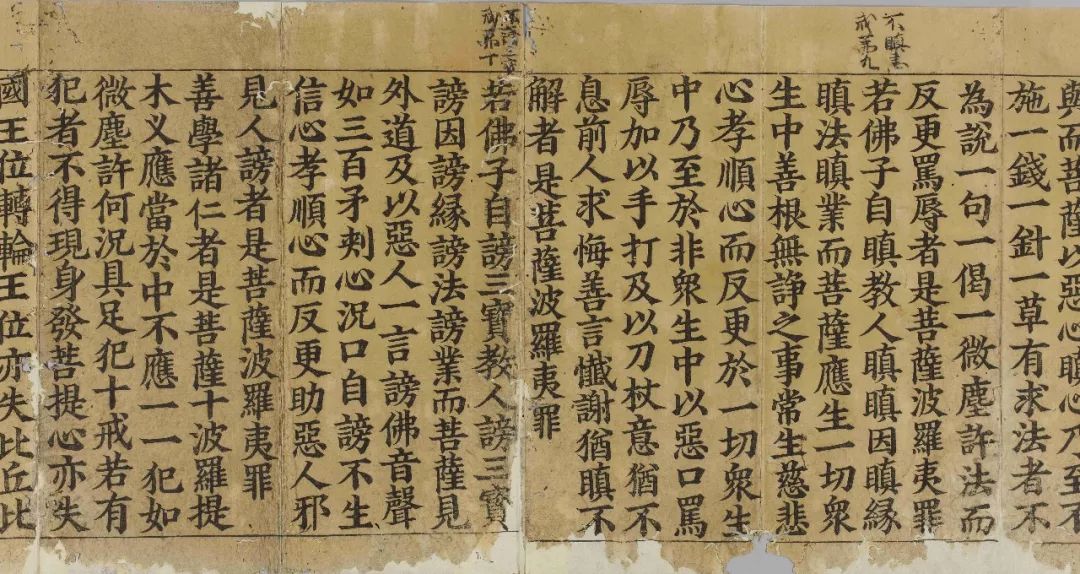 與而菩薩以惡心瞋心乃至不
施一錢一針一草有求法者不
為說一句一偈一微塵許法而
反更罵辱者是菩薩波羅夷罪
不瞋恚
戒弟九
若佛子自瞋教人瞋瞋因瞋緣
瞋法瞋業而菩薩應生一切衆
生中善根無諍之事常生慈悲
心孝順心而反更於一切衆生
中乃至於非衆生中以惡口罵
辱加以手打及以刀杖意猶不
息前人求悔善言懺謝猶瞋不
解者是菩薩波羅夷罪
戒弟十
若佛子自謗三寶教人謗三寶
謗因謗緣謗法謗業而菩薩見
外道及以惡人一言謗佛音聲
如三百矛刺心況口自謗不生
信心孝順心而反更助惡人邪
見人謗者是菩薩波羅夷罪
善學諸仁者是菩薩十波羅提
木义應當於中不應一一犯如
微塵許何況具足犯十戒若有
犯者不得現身發菩提心亦失
國王位轉輪王位亦失比丘比